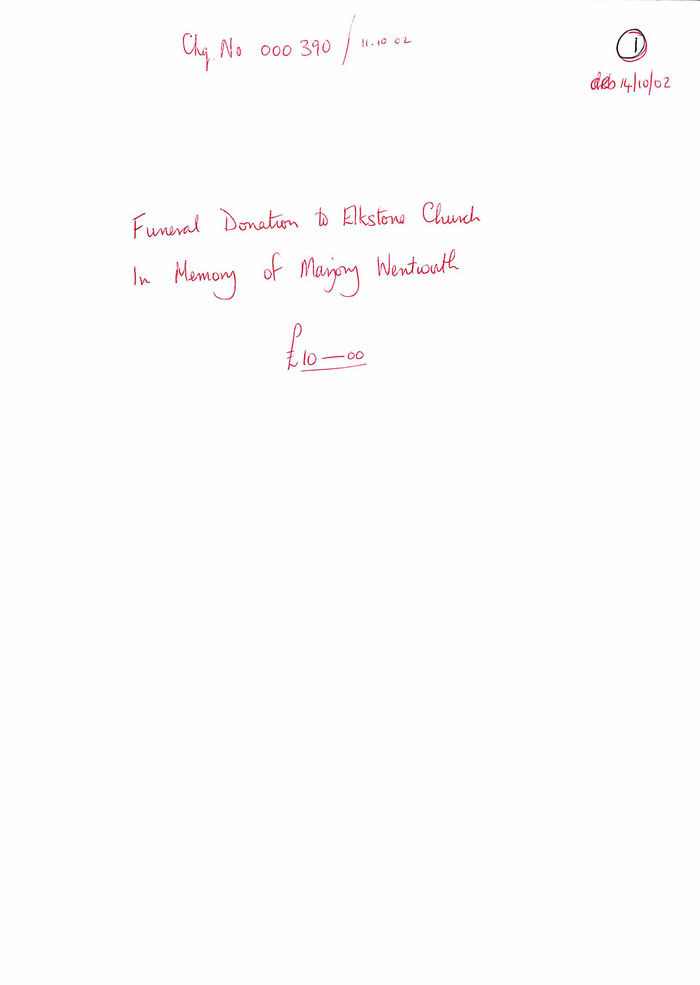 Chq. No 000 390 / 11.10 02
1
deb 14/10/02
Funeral Donation to Elkstone Church
In Memory of Marjory Wentworth
£10—00